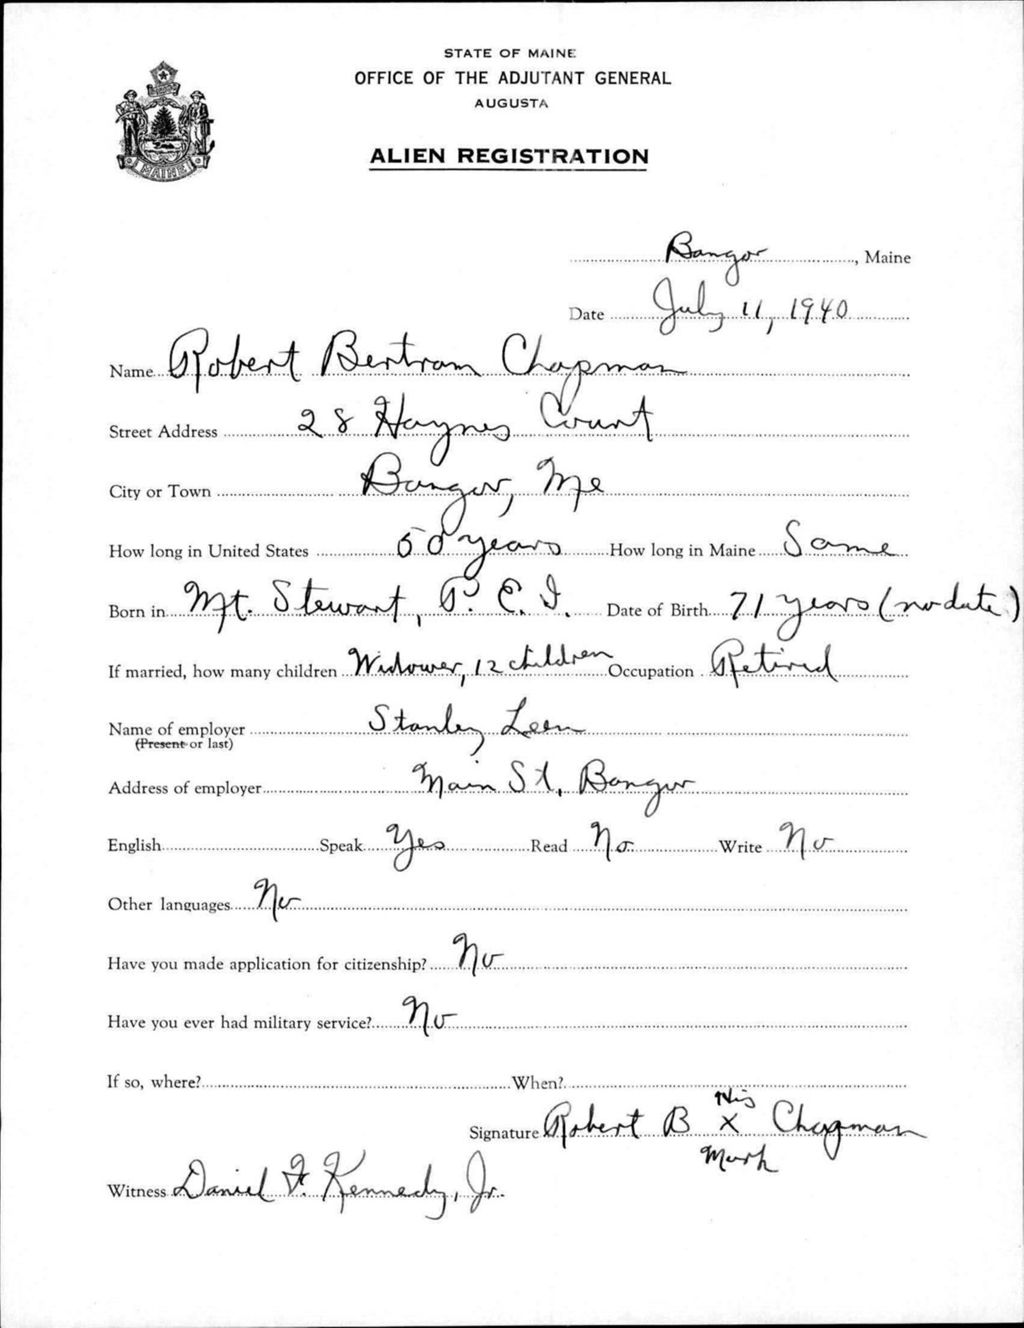 STATE OF MAINE
OFFICE OF THE ADJUTANT GENERAL
AUGUSTA
ALIEN REGISTRATION
MAINE
Bangor, Maine
Date July 11, 1940
Name Robert Bertram Chapman
Street Address 28 Haynes Court
City or Town Bangor, Me
How long in United States 50 years How long in Maine Same
Born in Mt. Stewart, P. E. I. Date of Birth 71 years (no date)
If married, how many children Widower, 12 children Occupation Retired
Name of employer Stanley Leen
(Present or last)
Address of employer Main St, Bangor
English Speak Yes Read No Write No
Other languages No
Have you made application for citizenship? No
Have you ever had military service? No
If so, where? When?
His
Signature Robert B X Chapman
Mark
Witness Daniel F. Kennedy, Jr.